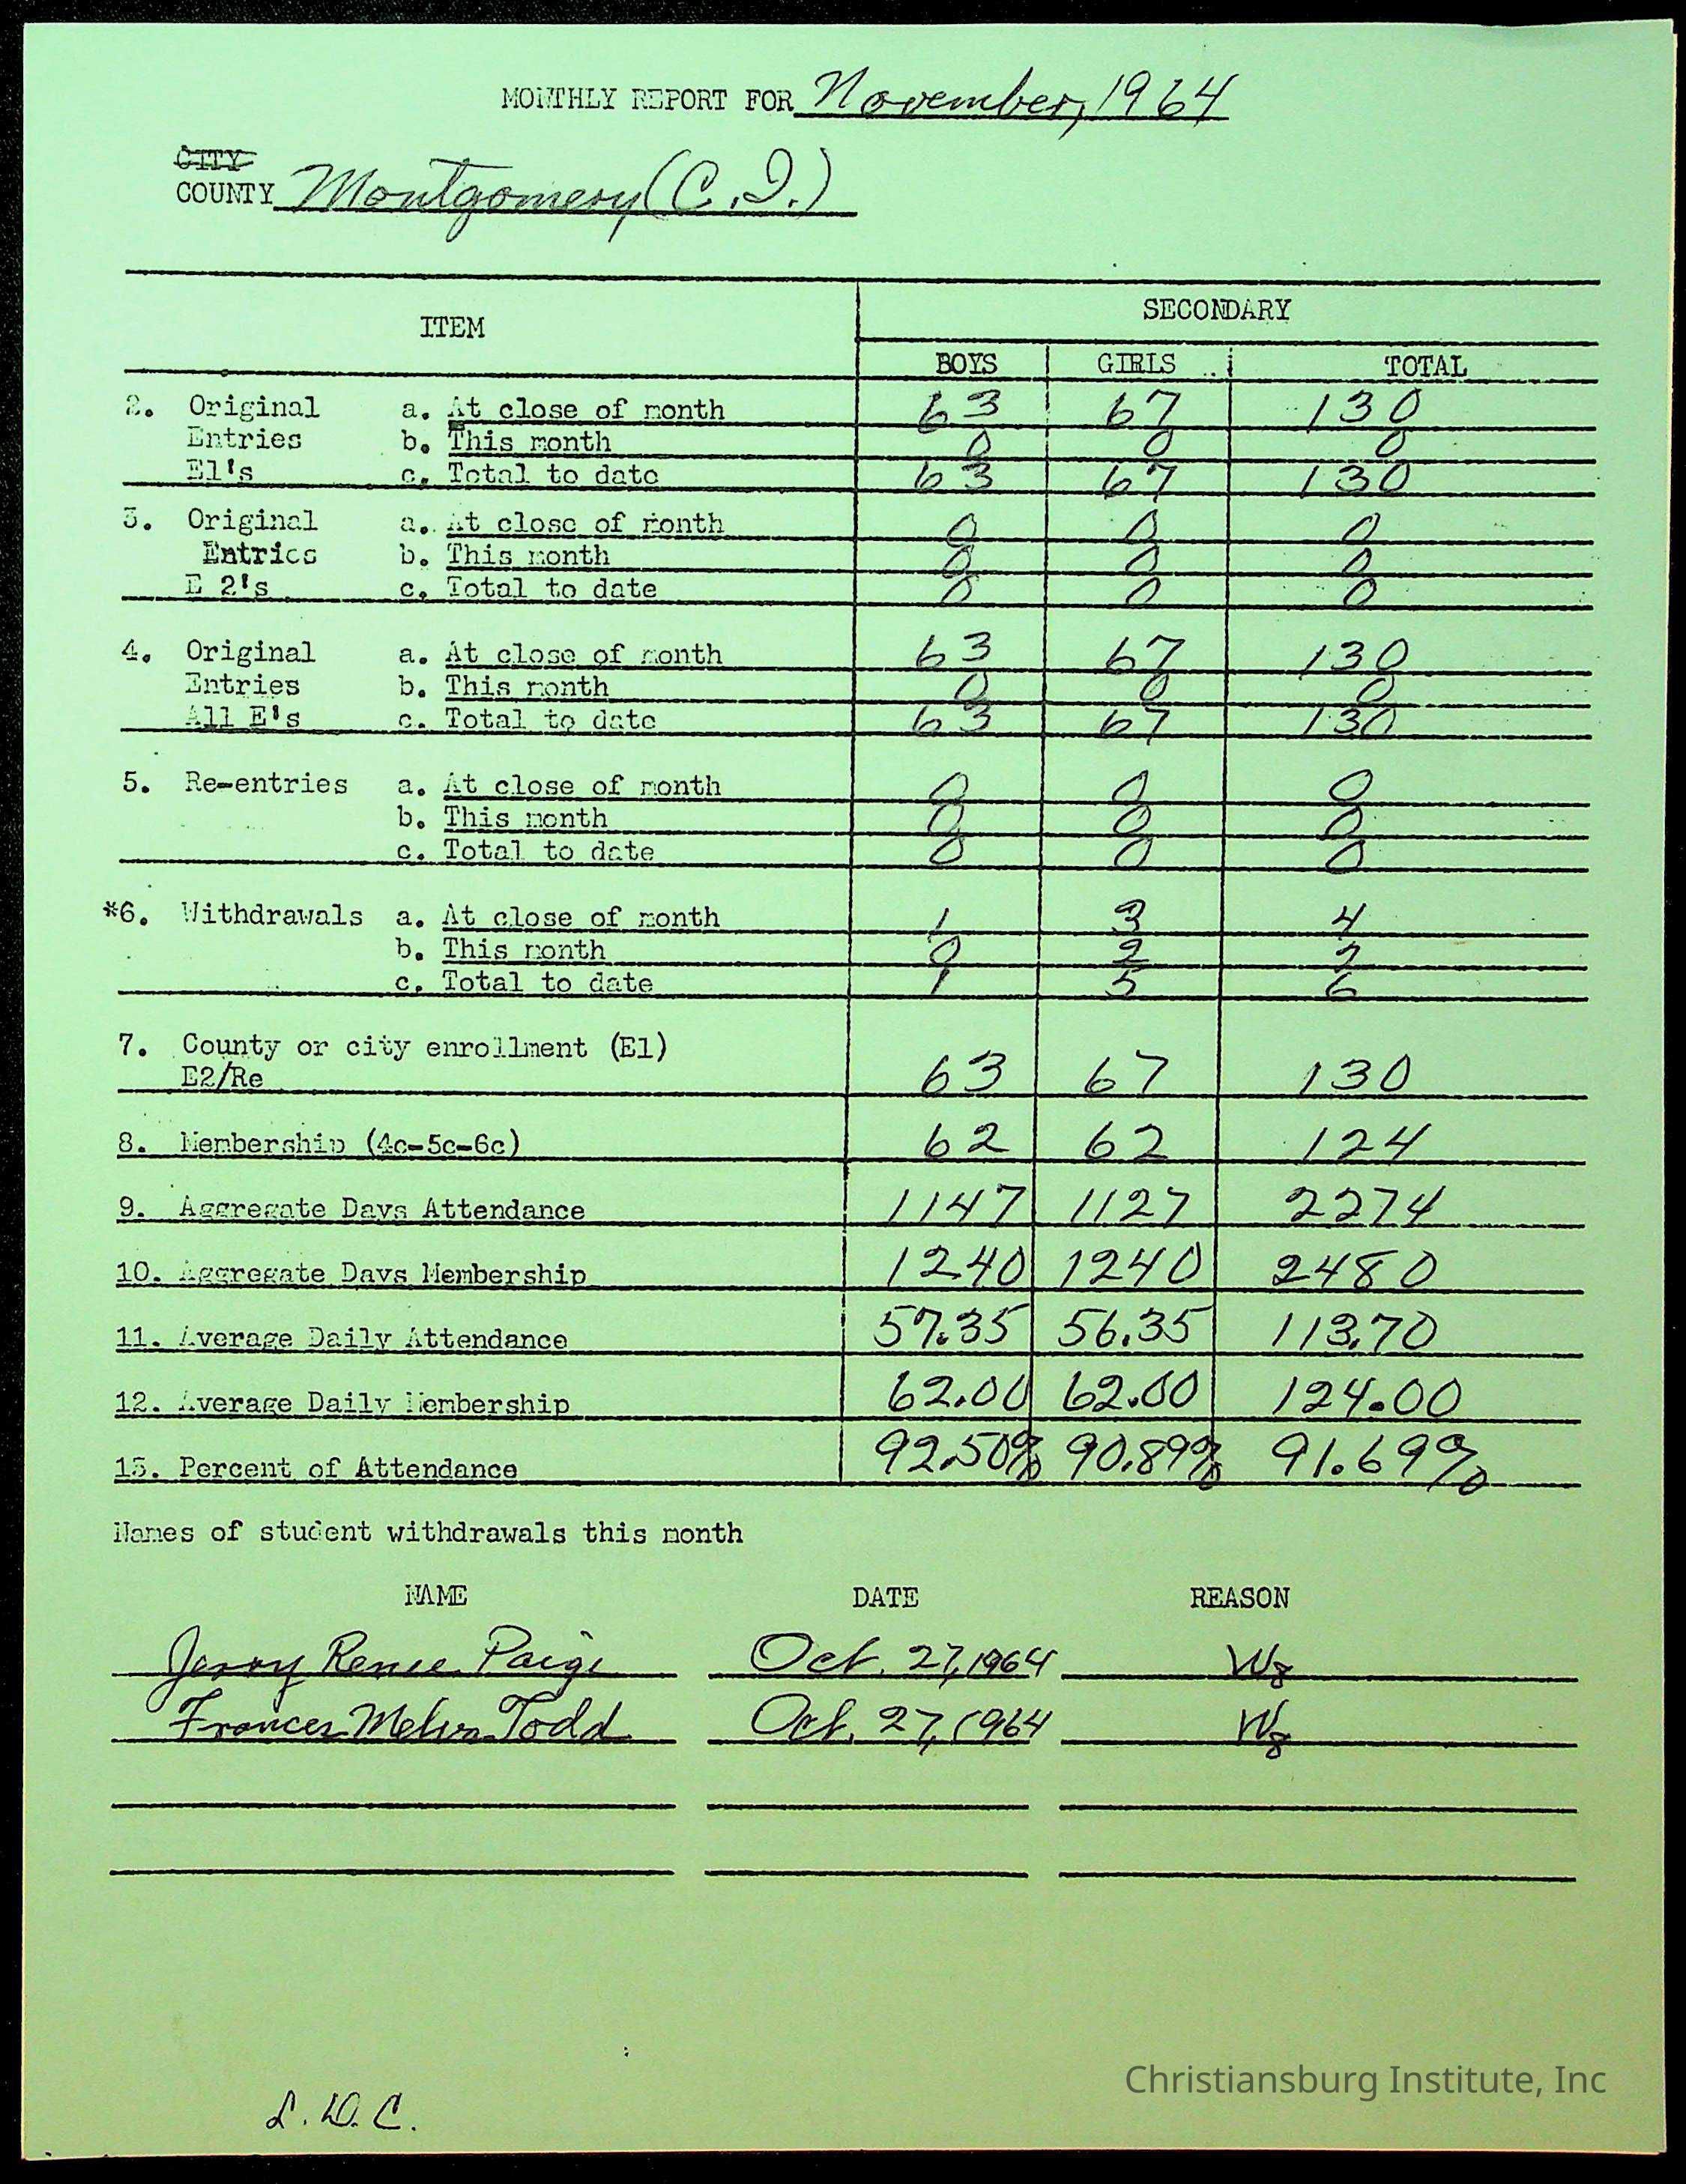 MONTHLY REPORT FOR November, 1964
CITY
COUNTY Montgomery (C.I.)
ITEM SECONDARY
BOYS GIRLS TOTAL
2. Original a. At close of month 63 67 130
Entries b. This month 0 0 0
E1's c. Total to date 63 67 130
3. Original a. At close of month 0 0 0
Entries b. This month 0 0 0
E 2's c. Total to date 0 0 0
4. Original a. At close of month 63 67 130
Entries b. This month 0 0 0
All E's c. Total to date 63 67 130
5. Re-entries a. At close of month 0 0 0
b. This month 0 0 0
c. Total to date 0 0 0
*6. Withdrawals a. At close of month 1 3 4
b. This month 0 2 2
c. Total to date 1 5 6
7. County or city enrollment (E1)
E2/Re 63 67 130
8. Membership (4c-5c-6c) 62 62 124
9. Aggregate Days Attendance 1147 1127 2274
10. Aggregate Days Membership 1240 1240 2480
11. Average Daily Attendance 57.35 56.35 113.70
12. Average Daily Membership 62.00 62.00 124.00
13. Percent of Attendance 92.50% 90.89% 91.69%
Names of student withdrawals this month
NAME DATE REASON
Renee Paige Oct. 27, 1964 W8
Frances Todd Oct. 27, 1964 W8
Christiansburg Institute, Inc
L.W.C.